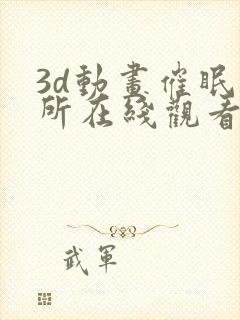 3d動畫催眠
所在綫觀看
武軍